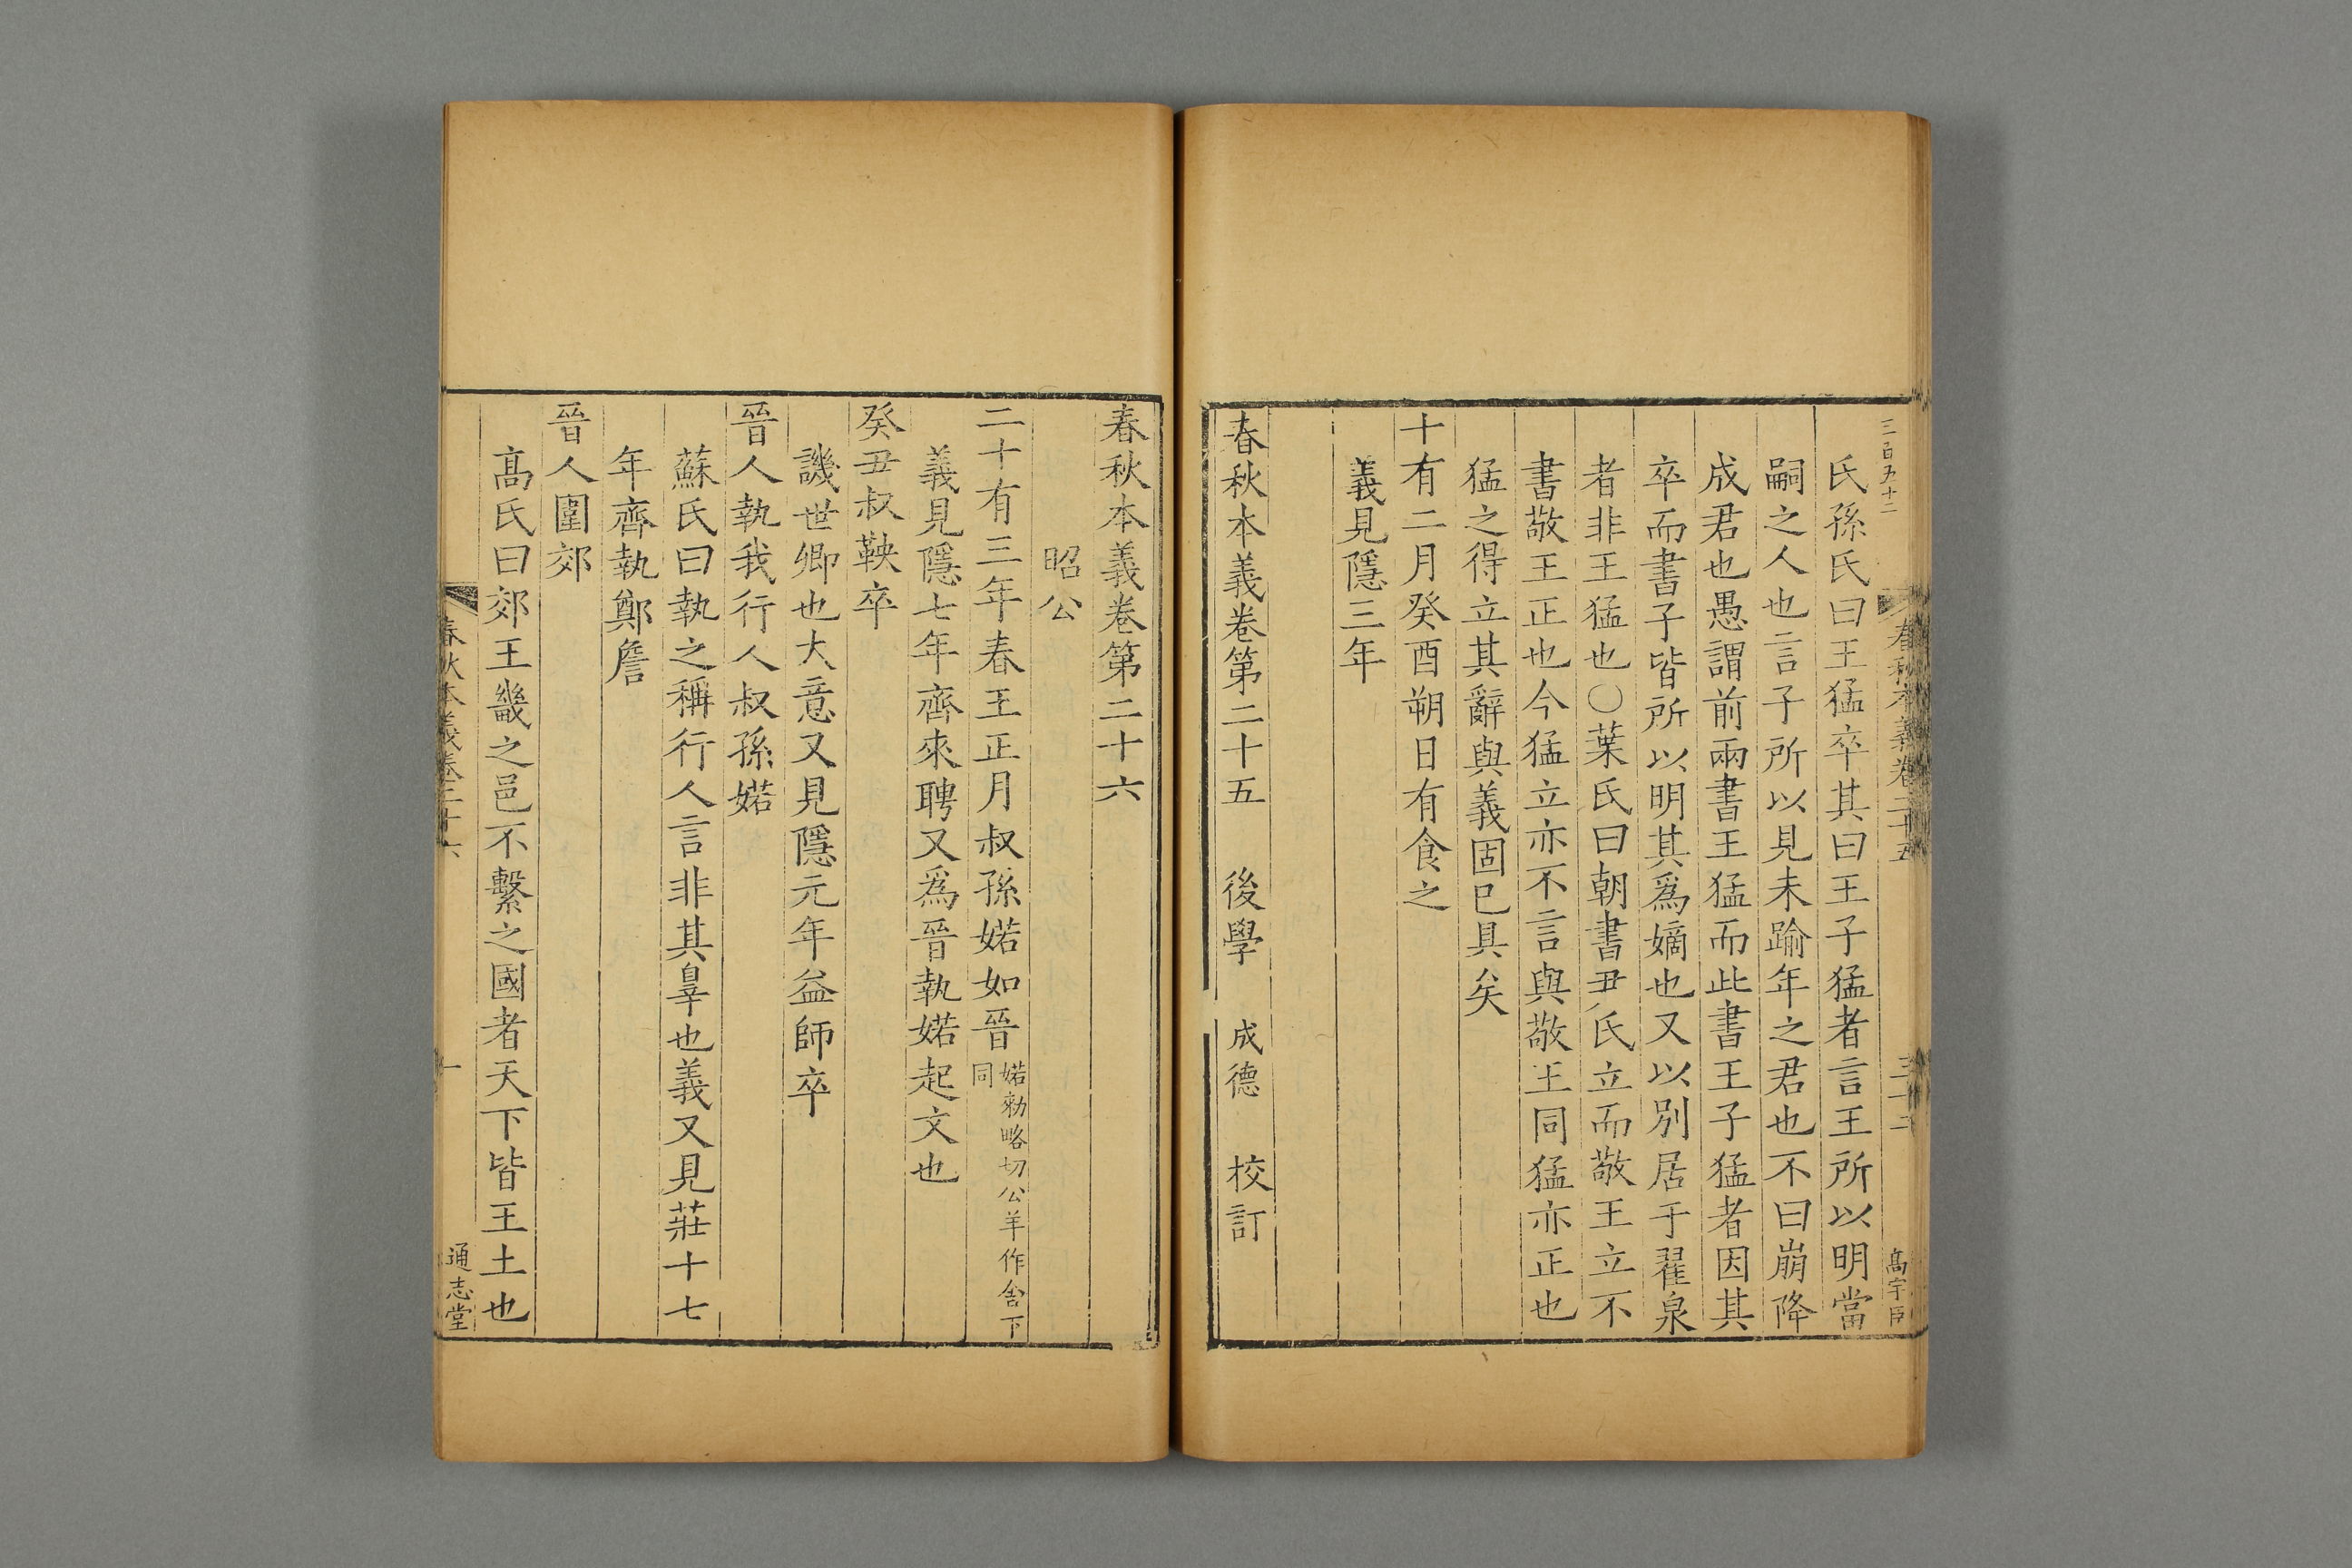 三百九十二
春秋本義卷二十五 三十二 高宇臣
氏孫氏曰王猛卒其曰王子猛者言王所以明當
嗣之人也言子所以見未踰年之君也不曰崩降
成君也愚謂前兩書王猛而此書王子猛者因其
卒而書子皆所以明其爲嫡也又以別居于翟泉
者非王猛也○葉氏曰朝書尹氏立而敬王立不
書敬王正也今猛立亦不言與敬王同猛亦正也
猛之得立其辭與義固已具矣
十有二月癸酉朔日有食之
義見隱三年
春秋本義卷第二十五 後學 成德 校訂
春秋本義卷第二十六
昭公
二十有三年春王正月叔孫婼如晉婼勑略切公羊作舍下同
義見隱七年齊來聘又爲晉執婼起文也
癸丑叔鞅卒
譏世卿也大意又見隱元年益師卒
晉人執我行人叔孫婼
蘇氏曰執之稱行人言非其辠也義又見莊十七
年齊執鄭詹
晉人圍郊
高氏曰郊王畿之邑不繫之國者天下皆王土也
春秋本義卷二十六 一 通志堂